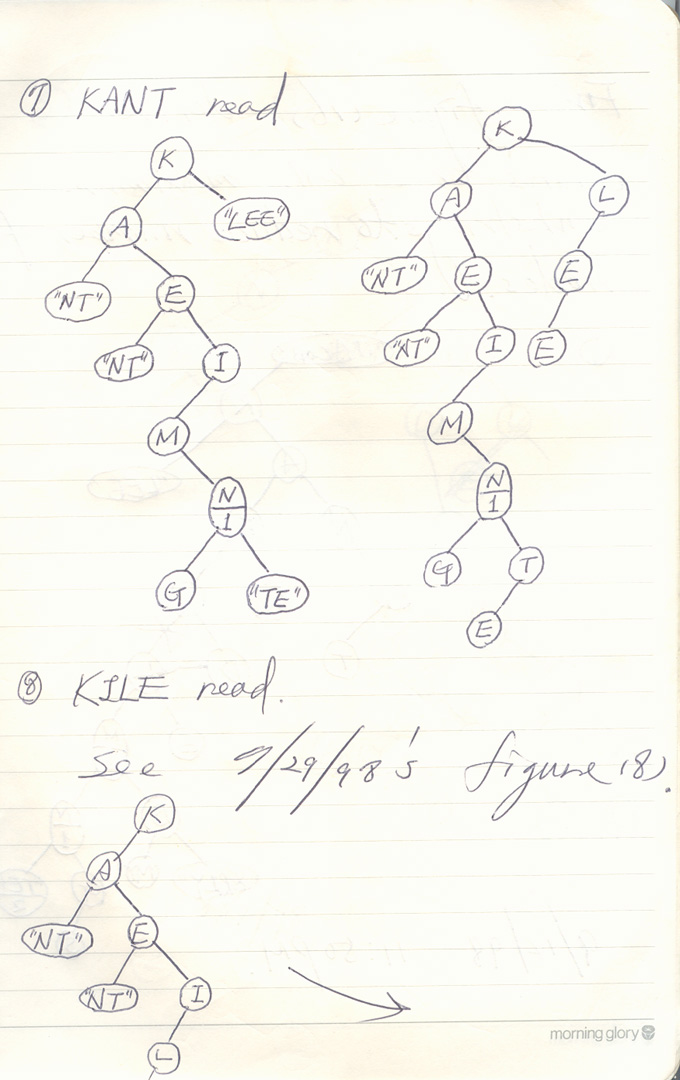 ⑦ KANT read
K
A "LEE"
"NT" E
"NT" I
M
N
1
G "TE"
K
A L
"NT" E E
I E
M
N
1
G T
E
⑧ KILE read.
See 9/29/98's figure (8).
K
A
"NT" E
"NT" I
L
morning glory